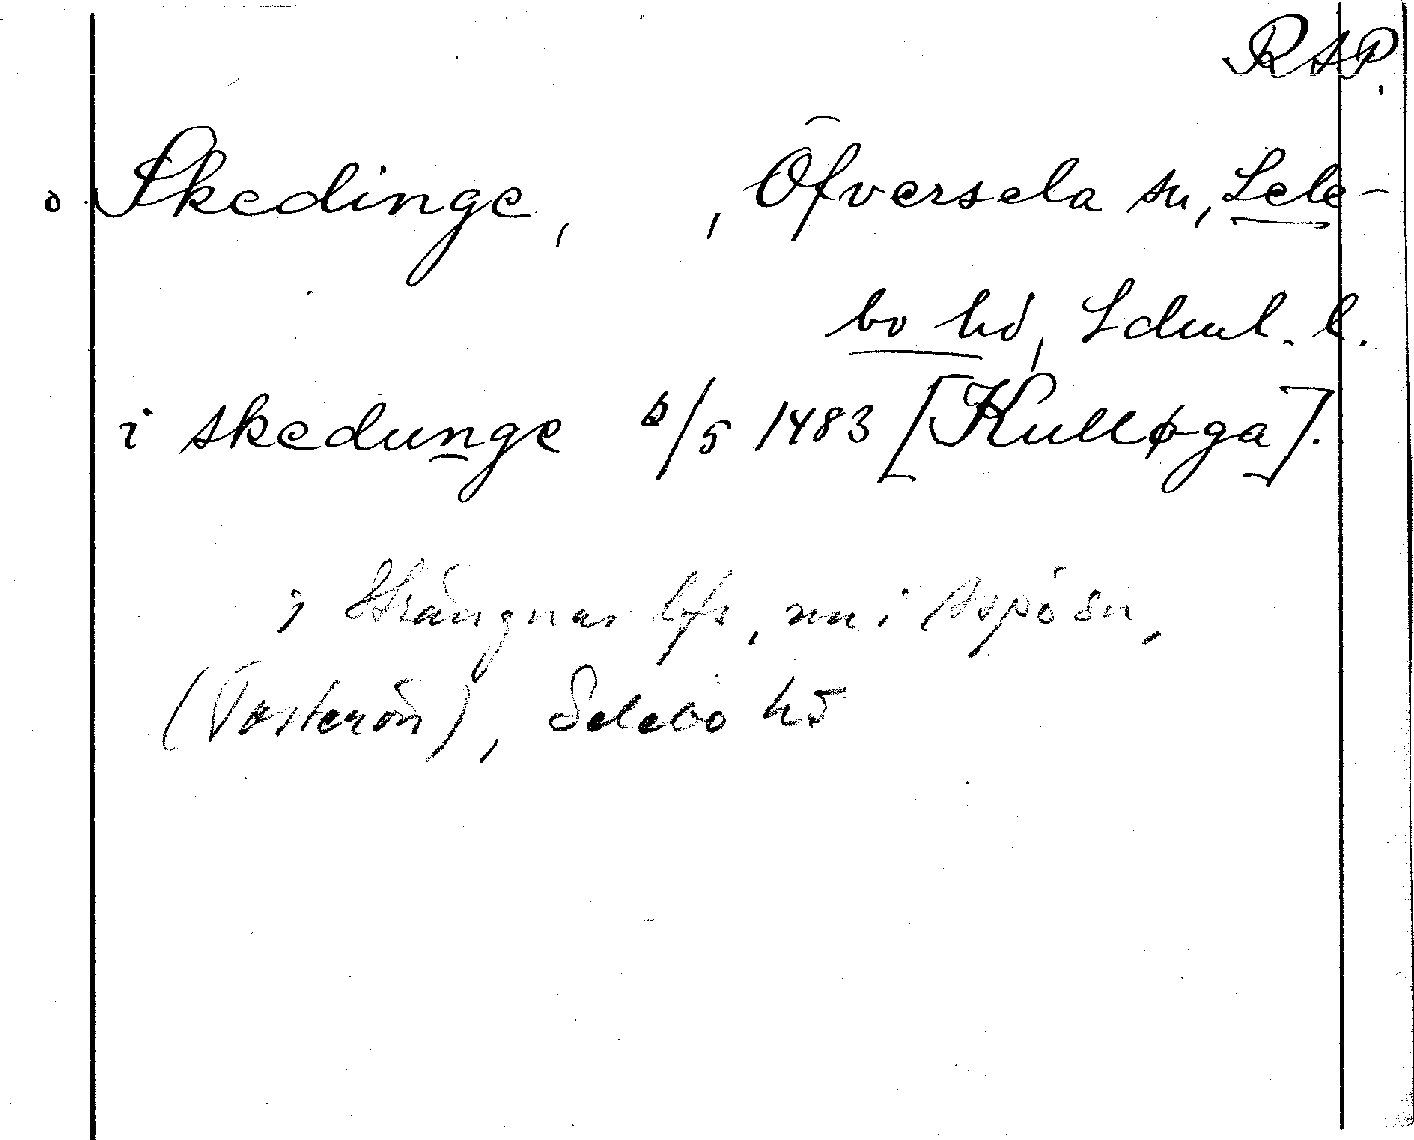 RAP.
o Skedinge, , Öfversela sn, Sele-
bo hd, Sdml. l.
i skedunge 5/5 1483 [Kulløga].
i Strängnäs lfs, nu i Aspö sn,
(Tosterön), Selebo hd